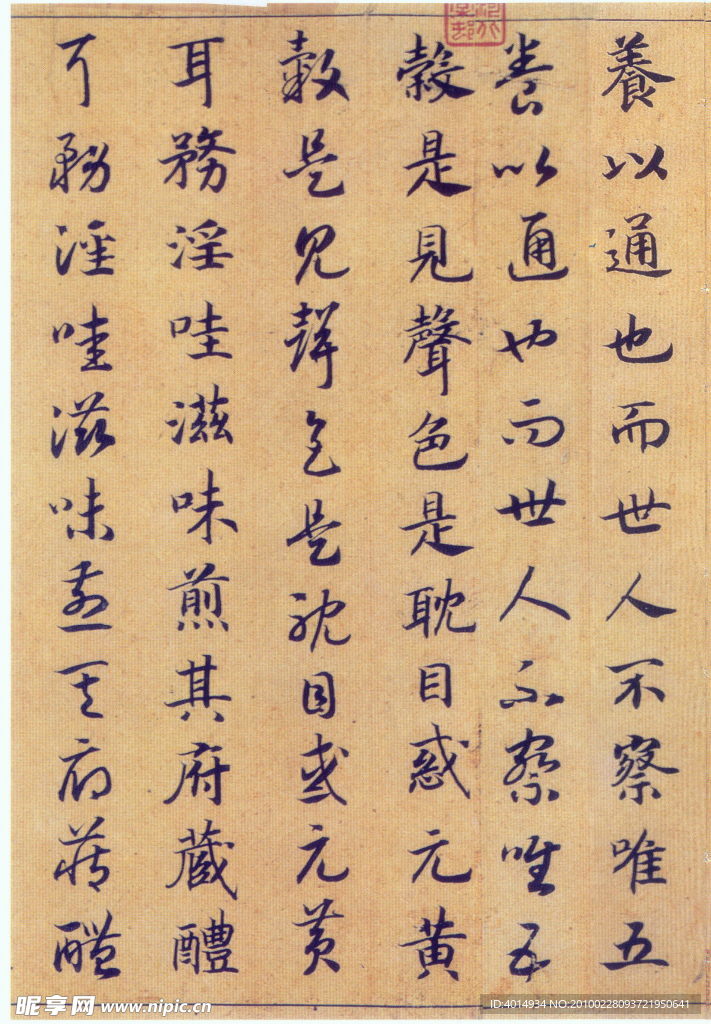 養以通也而世人不察唯五
養以通也而世人不察唯五
穀是見聲色是耽目惑元黃
穀是見聲色是耽目惑元黃
耳務淫哇滋味煎其府藏醴
耳務淫哇滋味煎其府藏醴
昵享网 www.nipic.cn
ID:4014934 NO:20100228093721950641